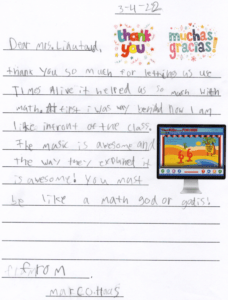 3-4-22
thank you
muchas gracias!
Dear Mrs.
thank you so much for letting us use
Timez Alive it helped us so much with
math. At first i was very behind now I am
like infront of the class.
The music is awesome and
the way they it
is awesome! You must
be like a math god or
from